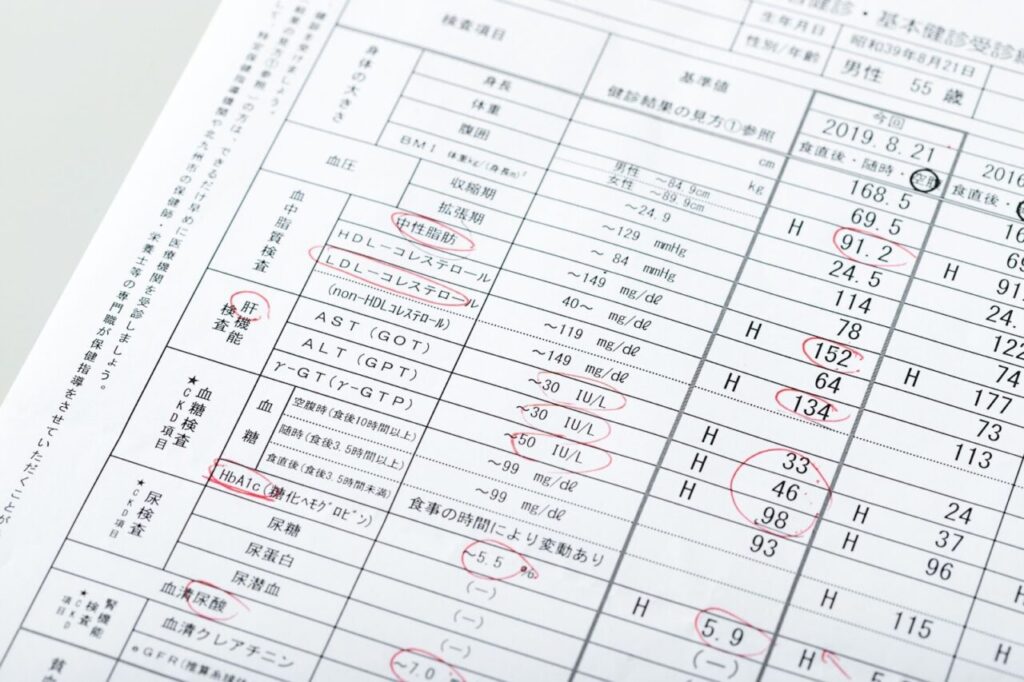 健診・基本健診受診
生年月日 昭和39年8月21日
性別/年齢 男性 55歳
検査項目 基準値 健診結果の見方①参照 今回 2019.8.21 2016
食直後・随時・空腹 食直後・
身体の大きさ
身長 cm 168.5
体重 kg 69.5
腹囲 男性 ~84.9cm 女性 ~89.9cm H 91.2 H
BMI 体重kg/(身長m)² ~24.9 24.5 24.
血圧
収縮期 ~129 mmHg 114 122
拡張期 ~84 mmHg 78 74
血中脂質検査
中性脂肪 ~149 mg/dℓ H 152 H 177
HDL-コレステロール 40~ mg/dℓ 64 73
LDL-コレステロール ~119 mg/dℓ H 134 113
(non-HDLコレステロール) ~149 mg/dℓ
肝機能検査
AST(GOT) ~30 IU/L H 33 24
ALT(GPT) ~30 IU/L H 46 H 37
γ-GT(γ-GTP) ~50 IU/L H 98 H 96
★血糖検査 CKD項目
血糖
空腹時(食後10時間以上) ~99 mg/dℓ 93
随時(食後3.5時間以上) ~99 mg/dℓ H 115
食直後(食後3.5時間未満) 食事の時間により変動あり
HbA1c(糖化ヘモグロビン) ~5.5 % H 5.9 H
★尿検査 CKD項目
尿糖 (−) (−)
尿蛋白 (−)
尿潜血 (−)
血清尿酸 ~7.0
★腎機能検査 CKD項目
血清クレアチニン
eGFR(推算糸球体
貧血
の方は、できるだけ早めに医療機関を受診しましょう。
結果の見方①参照
特定保健指導機関や北九州市の保健師・栄養士等の専門職が保健指導をさせていただくことが